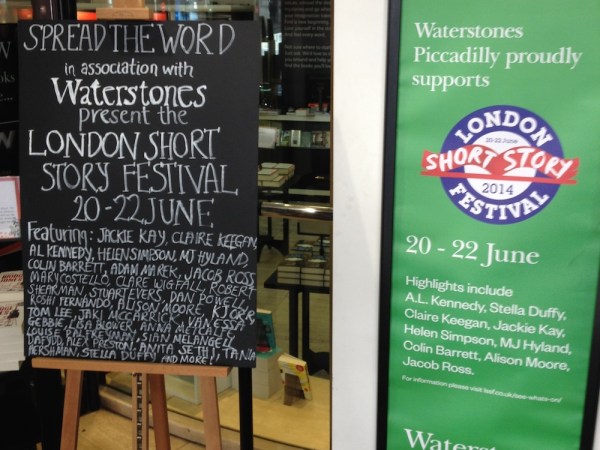 SPREAD THE WORD
in association with
Waterstones
present the
LONDON SHORT
STORY FESTIVAL
20-22 JUNE
Featuring: JACKIE KAY, CLAIRE KEEGAN,
AL KENNEDY, HELEN SIMPSON, MJ HYLAND,
COLIN BARRETT, ADAM MAREK, JACOB ROSS,
MARY COSTELLO, CLARE WIGFALL, ROBERT
SHEARMAN, STUART EVERS, DAN POWELL,
ROSHI FERNANDO, ALISON MOORE, KJ ORR,
TOM LEE, JAKI MCCARRICK, VANESSA
GEBBIE, LISA BLOWER, ANNA
LOUISE SIAN MELANGELL
DAFYDD, ALEX PRESTON, ANITA SETHI, TANIA
HERSHMAN, STELLA DUFFY AND MORE!
Waterstones
Piccadilly proudly
supports
LONDON
20-22 June
SHORT STORY
2014
FESTIVAL
20 - 22 June
Highlights include
A.L. Kennedy, Stella Duffy,
Claire Keegan, Jackie Kay,
Helen Simpson, MJ Hyland,
Colin Barrett, Alison Moore,
Jacob Ross.
For information please visit lssf.co.uk/see-whats-on/